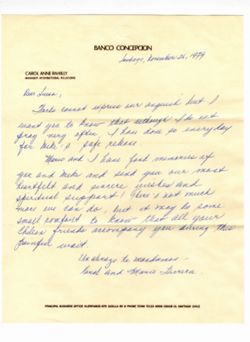 BANCO CONCEPCION
Santiago, November 26, 1979
CAROL ANNE RAMILLY
MANAGER INTERNATIONAL RELATIONS
Dear
Words cannot express our anguish but I
want you to know that although I do not
pray very often, I have done so everyday
for Mike's safe release.
Mario and I have fond memories of
you and Mike and send you our most
heartfelt and sincere wishes and
spiritual support! There's not much
more we can do, but it may be some
small comfort to know that all your
Chilean friends accompany you during this
painful wait.
Un abrazo to
Carol and Mario